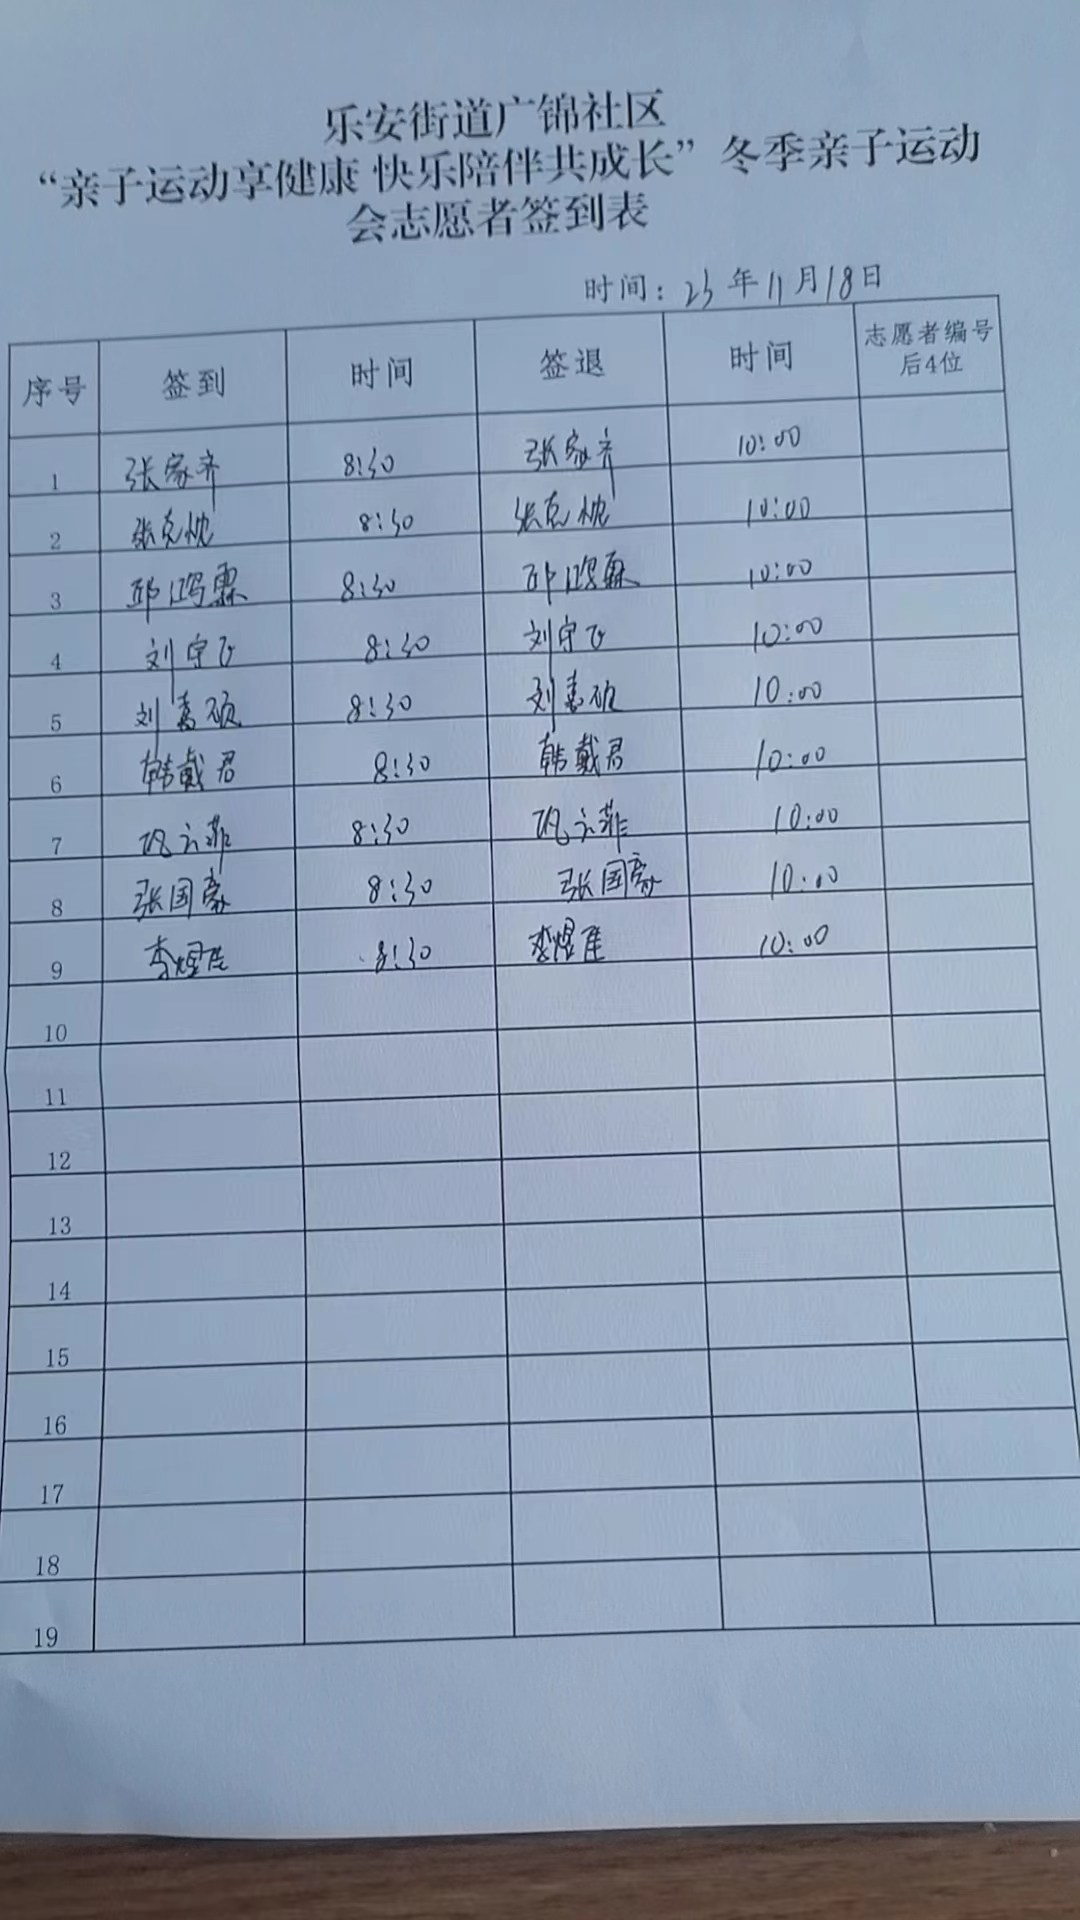 乐安街道广锦社区
“亲子运动享健康 快乐陪伴共成长”冬季亲子运动
会志愿者签到表
时间：23年11月18日
序号 签到 时间 签退 时间 志愿者编号后4位
1 张家齐 8:30 张家齐 10:00
2 张克忱 8:30 张克忱 10:00
3 邱鸿霖 8:30 邱鸿霖 10:00
4 刘守飞 8:30 刘守飞 10:00
5 刘嘉硕 8:30 刘嘉硕 10:00
6 韩戴君 8:30 韩戴君 10:00
7 8:30 10:00
8 张国豪 8:30 张国豪 10:00
9 李煜佳 8:30 李煜佳 10:00
10
11
12
13
14
15
16
17
18
19